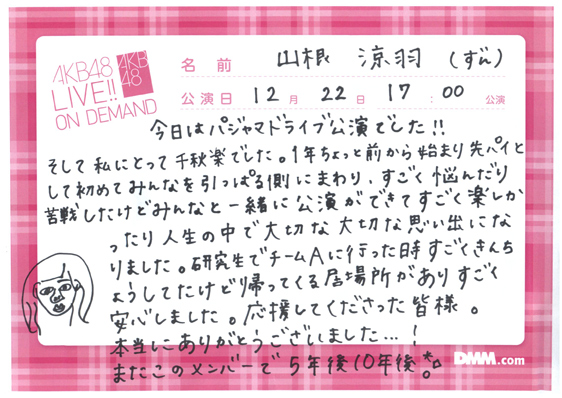 AKB48
LIVE!!
ON DEMAND
AKB
48
名前 山根 涼羽 (ずん)
公演日 12月 22日 17:00 公演
今日はパジャマドライブ公演でした!!
そして私にとって千秋楽でした。1年ちょっと前から始まり先パイと
して初めてみんなを引っぱる側にまわり、すごく悩んだり
苦戦したけどみんなと一緒に公演ができてすごく楽しか
ったり人生の中で大切な大切な思い出にな
りました。研究生でチームAに行った時すごくきんち
ょうしてたけど帰ってくる居場所がありすごく
安心しました。応援してくださった皆様。
本当にありがとうございました…!
またこのメンバーで5年後10年後
DMM.com